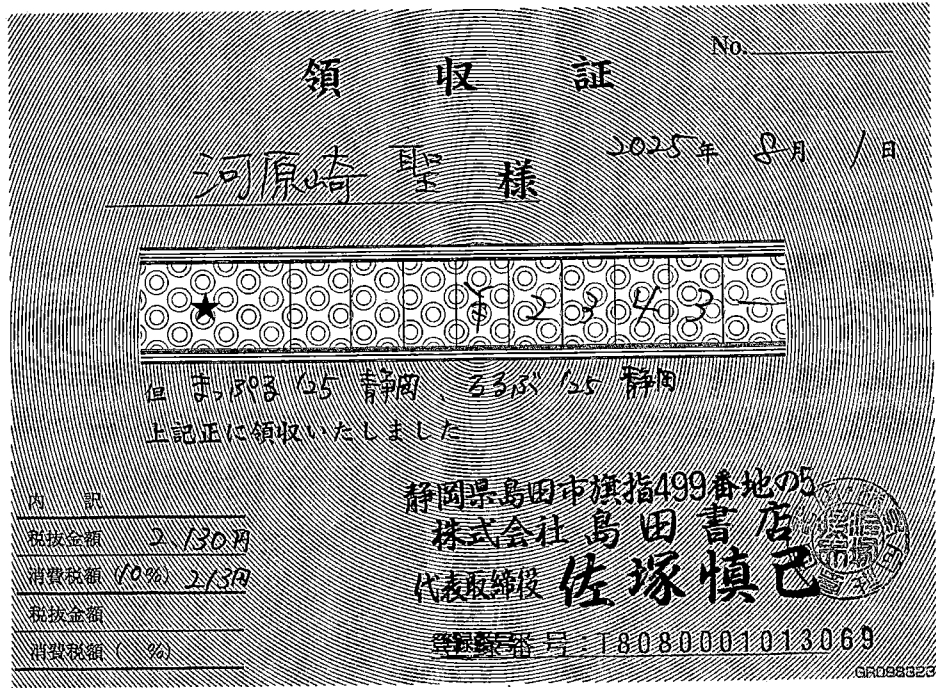 No.
領収証
2025年 8月 1日
河原崎 聖 様
★ ¥2343-
但 まっぷる '25 静岡、るるぶ '25 静岡
上記正に領収いたしました
内訳
税抜金額 2,130円
消費税額 (10%) 213円
税抜金額
消費税額 ( %)
静岡県島田市旗指499番地の5
株式会社 島田書店
代表取締役 佐塚慎己
登録番号:T8080001013069
GR088323